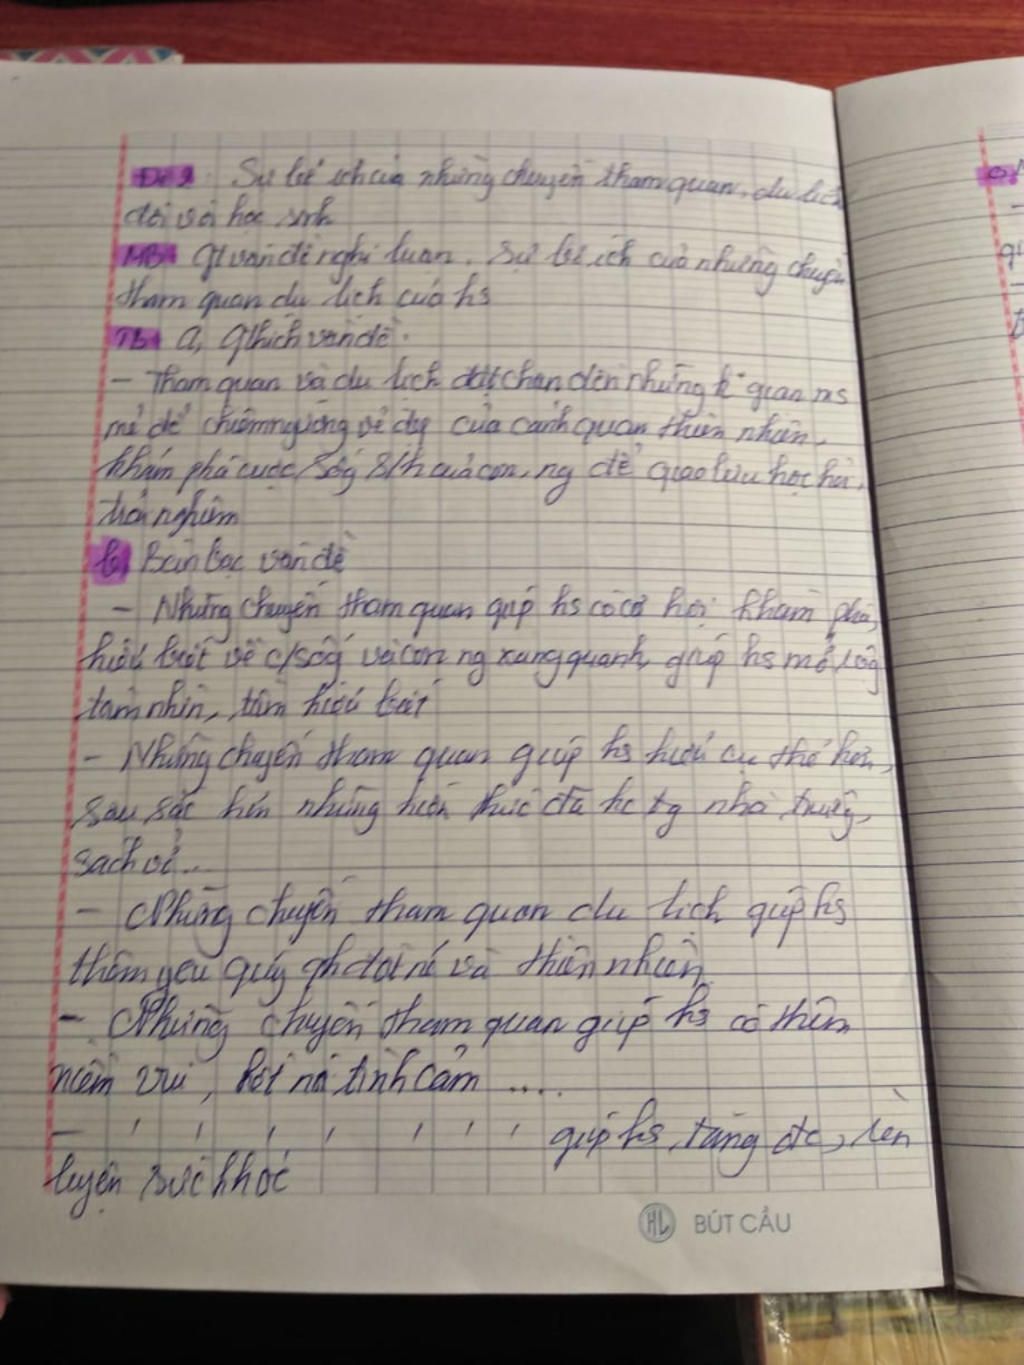 Đề 2: Sự bổ ích của những chuyến tham quan, du lịch
đối với học sinh
MB: Gt vấn đề nghị luận. Sự bổ ích của những chuyến
tham quan du lịch của hs
TB: a, Gthích vấn đề.
- Tham quan và du lịch đặt chân đến những k gian ms
mẻ để chiêm ngưỡng vẻ đẹp của cảnh quan thiên nhiên,
khám phá cuộc sốg của con ng để giao lưu học hỏi,
trải nghiệm
b, Bàn bạc vấn đề
- Những chuyến tham quan giúp hs có cơ hội khám phá,
hiểu biết về c/sốg và con ng xung quanh, giúp hs mở rộg
tầm nhìn, tầm hiểu biết
- Những chuyến tham quan giúp hs hiểu cụ thể hơn,
sâu sắc hơn những kiến thức đã hc tg nhà trườg,
sách vở...
- Những chuyến tham quan du lịch giúp hs
thêm yêu quý qh đất nc và thiên nhiên
- Những chuyến tham quan giúp hs có thêm
niềm vui, kết nối tình cảm ....
- ' ' ' ' ' ' ' giúp hs tăng đc, rèn
luyện sức khỏe
HL BÚT CẦU